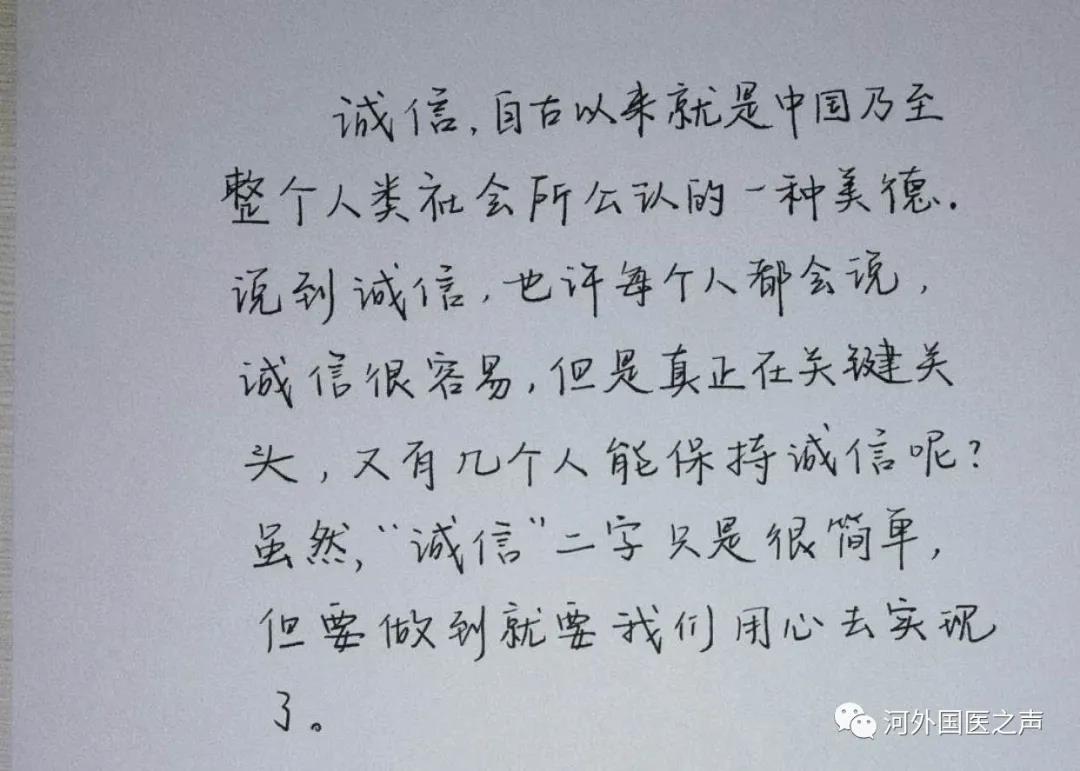 诚信，自古以来就是中国乃至
整个人类社会所公认的一种美德.
说到诚信，也许每个人都会说，
诚信很容易，但是真正在关键关
头，又有几个人能保持诚信呢？
虽然，“诚信”二字只是很简单，
但要做到就要我们用心去实现
了。
河外国医之声